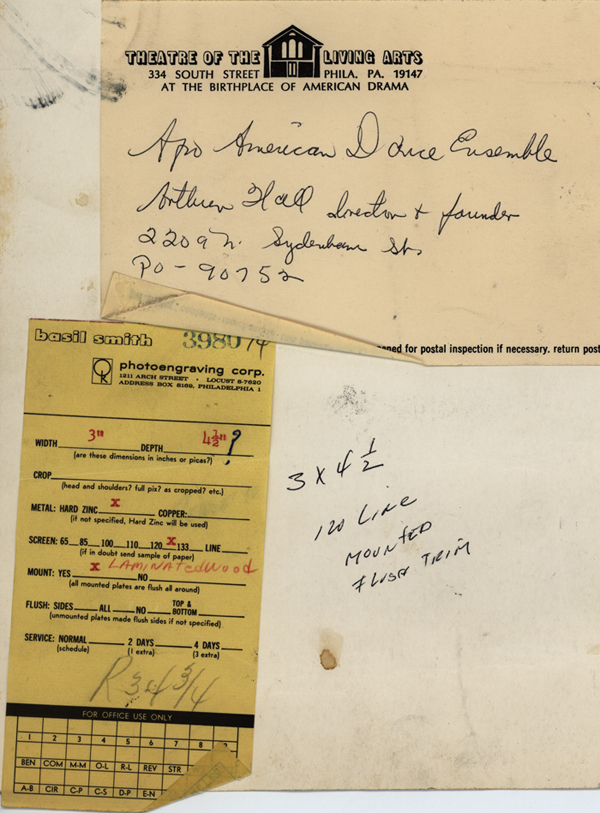 THEATRE OF THE LIVING ARTS
334 SOUTH STREET PHILA. PA. 19147
AT THE BIRTHPLACE OF AMERICAN DRAMA
Afro American Dance Ensemble
Arthur Hall Director + founder
2209 N. Sydenham St.
PO - 90752
ned for postal inspection if necessary. return post
basil smith 39807 4
photoengraving corp.
1211 ARCH STREET • LOCUST 8-7620
ADDRESS BOX 8169, PHILADELPHIA 1
WIDTH 3" DEPTH 4 1/2" ?
(are these dimensions in inches or picas?)
CROP
(head and shoulders? full pix? as cropped? etc.)
METAL: HARD ZINC x COPPER:
(if not specified, Hard Zinc will be used)
SCREEN: 65 85 100 110 120 x 133 LINE
(if in doubt send sample of paper)
MOUNT: YES x NO LAMINATEDWOOD
(all mounted plates are flush all around)
FLUSH: SIDES ALL NO TOP & BOTTOM
(unmounted plates made flush sides if not specified)
SERVICE: NORMAL 2 DAYS 4 DAYS
(schedule) (1 extra) (3 extra)
R 34 3/4
FOR OFFICE USE ONLY
1 2 3 4 5 6 7 8 9
BEN COM M-M O-L R-L REV STR
A-B CIR C-P C-S D-P E-N
3 x 4 1/2
120 LINE
MOUNTED
FLUSH TRIM